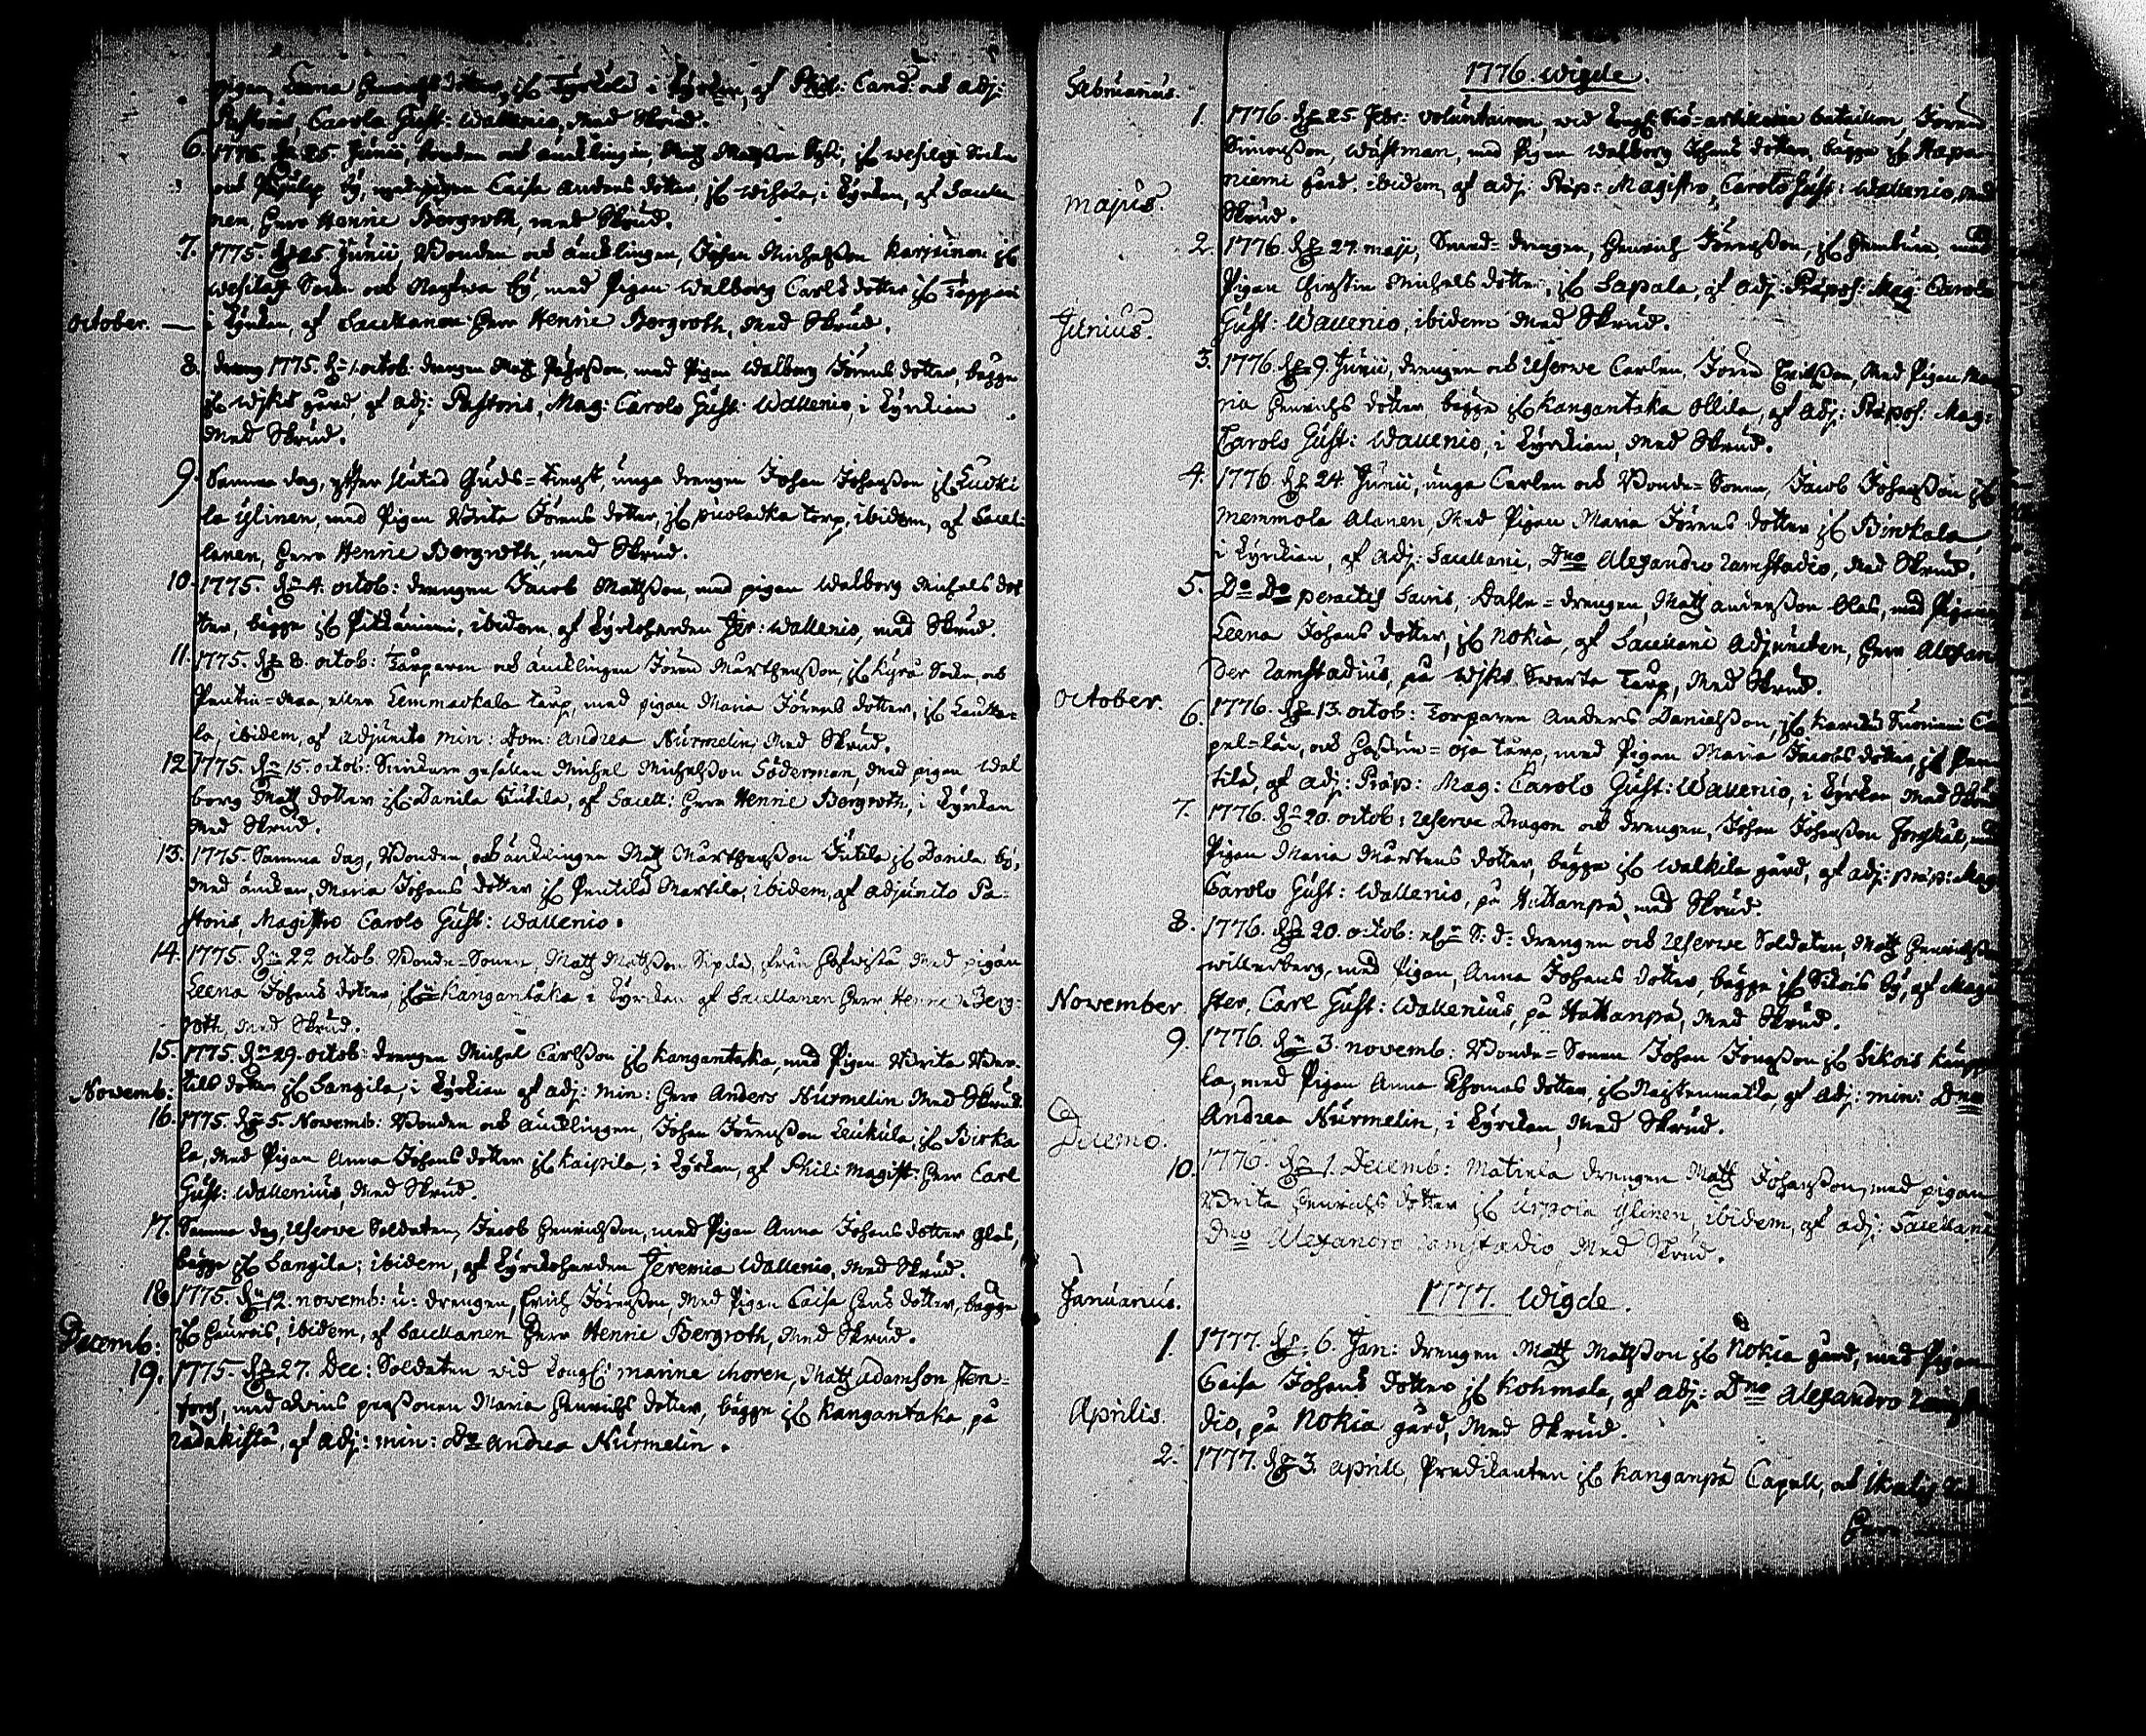 pigan Leena Henrichs dotter, if Tyrkölä i Kyrkan, af Phil: Cand: och Adj:
Pastoris, Carolo Gust: Wallenio, med Skrud.
6. 1775. d. 25. Junii, bonden och äncklingen, Matz Matsson if Wesilax Sokn
och by, med pigan Caisa Anders dotter, if Wihola, i Kyrkan, af Sacella-
nen, Herr Henric Bergroth, med Skrud.
7. 1775. d. 25. Junii Bonden och äncklingen, Johan Michelsson Karjuinen if
Wesilax Sokn och by, med Pigan Walborg Carls dotter if Toppari
October. i Kyrkan, af Sacellanen Herr Henric Bergroth, med Skrud.
8. 1775. d. 1. octob: drengen Matz, med Pigan Walborg Jörens dotter, bägge
if Wiks gård, af Adj: Pastoris, Mag: Carolo Gust: Wallenio, i Kyrckian
med Skrud.
9. Samma dag, efter slutad Guds=tienst, unga drengen Johan Johansson if Luoki
la Ylinen, med Pigan Brita Jörens dotter, if torp, ibidem, af Sacel-
lanen, Herr Henric Bergroth, med Skrud.
10. 1775. d. 4. octob: drengen Jacob Mattsson, med pigan Walborg Michels dot
ter, bägge if Pitkäniemi, ibidem, af Kyrkoherden Jer: Wallenio, med Skrud.
11. 1775. d. 8. octob: Torparen och äncklingen Jören Mårthensson, if Kyrö Sokn, och
Pentin=maa, eller Lemmackala torp, med pigan Maria Jörens dotter, if Laukka-
la, ibidem, af Adjuncto min: Dom: Andrea Nurmelin, med Skrud.
12 1775. d. 15. octob: gesällen Michel Michelsson Söderman, med pigan Wal
borg Matz dotter if Danila Kutila, af Sacell: Herr Henric Bergroth, i Kyrkan
med Skrud.
13. 1775. Samma dag, Bonden, och äncklingen Matz Mårthensson Jutila if Danila by,
med änckan, Maria Johans dotter if Penttilä Martila, ibidem, af adjuncto Pa-
storis, Magistro Carolo Gust: Wallenio.
14. 1775. d. 22 octob. Bonde=Sonen, Matz Matsson Sipilä, från Hafwisto med pigan
Leena Johans dotter, if Kangantaka i Kyrkan af Sacellanen Herr Henric Berg-
roth, med Skrud.
15. 1775. d. 29. octob: drengen Michel Carlsson if Kangantaka, med Pigan Brita Ber-
Novemb: tils dotter if Sangila, i Kyrkian af adj: min: Herr Anders Nurmelin med Skrud.
16. 1775. d. 5. Novemb: Bonden och äncklingen, Johan Jörensson Leukula, if Birka
la, med Pigan Anna Johans dotter if Kaipila, i Kyrkan, af Phil: Magist: Herr Carl
Gust: Wallenius, med Skrud.
17. Samma dag, Reserve Soldaten, Jacob Henrichsson, med Pigan Anna Johans dotter Glas,
bägge if Sangila, ibidem, af Kyrkoherden Jeremia Wallenio, med Skrud.
18. 1775. d. 12. novemb: u: drengen, Erich Jörensson, med Pigan Caisa Hans dotter, bägge
if Haurois, ibidem, af Sacellanen Herr Henric Bergroth, med Skrud.
Decemb:
19. 1775. d. 27. Dec: Soldaten wid Kongl: marine choren, Matz Adamson Sten-
fors, med qwins personen Maria Henrichs dotter, bägge if Kangantaka, på
, af adj: min: Do Andrea Nurmelin.
1776. Wigde.
Februarius.
1. 1776. d. 25. Febr: voluntairen, wid Kongl: Siö=artillerie bataillon, Jören
Simonsson, Wästman, med Pigan Walborg Johans dotter, bägge if Hapa-
niemi gård, ibidem, af adj: Præp: Magistro, Carolo Gust: Wallenio, med
Majus. Skrud.
2. 1776. d. 27. maji, Smed=drengen, Henrich Jörensson, if, med
Pigan Christin Michels dotter, if Sapala, af adj: Præpos: Mag: Carolo
Junius. Gust: Wallenio, ibidem med Skrud.
3. 1776. d. 9. Junii, drengen och Reserve Carlen, Jören Erichsson, med Pigan Ma-
ria Henrichs dotter bägge if Kangantaka Ollila, af adj: Præpos: Mag:
Carolo Gust: Wallenio, i Kyrckian, med Skrud.
4. 1776 d. 24 Junii, unga Carlen och Bonde=Sonen, Jacob Johansson if
Memmola Alanen, med Pigan Maria Jörens dotter if Birckala
i Kyrckian, af adj: Sacellani, Dno Alexandro Ramstadio, med Skrud.
5. Do Do peractis Sacris, drengen, Matz Andersson Glas, med Pigan
Leena Johans dotter, if Nokia, af Sacellani Adjuncten, Herr Alexan-
der Ramstadius, på Wiks Swarta Torp, med Skrud.
October. 6. 1776. d. 13. octob: Torparen Anders Danielsson, if Suoniemi Ca-
pel=län, och torp, med Pigan Maria Jacobs dotter, if Pen
tilä, af adj: Præp: Mag: Carolo Gust: Wallenio, i Kyrkan med Skrud
7. 1776. d. 20. octob: Reserve Dragon och drengen, Johan Johansson, med
Pigan Maria Mårtens dotter, bägge if Walkila gård, af adj: præp: Mag
Carolo Gust: Wallenio, på Hattanpä, med Skrud.
8. 1776. d. 20. octob: S: d: drengen och Reserve Soldaten, Matz Henrichsson
Willerberg, med Pigan, Anna Johans dotter, bägge if Sikois by, af Magi
November. ster, Carl Gust: Wallenius, på Hattanpä, med Skrud.
9. 1776. d. 3. novemb: Bonde=Sonen Johan if Sikois Kaup
la, med Pigan Anna Thomas dotter, if Raistenmatka, af Adj: min: Dno
Andrea Nurmelin, i Kyrckan, med Skrud.
Decemb.
10. 1776. d. 1. Decemb: Matiela drengen Matz Johansson, med pigan
Brita Henrichs dotter if Urpola Ylinen, ibidem, af adj: Sacellani
Dno Alexandro Ramstadio, med Skrud.
1777. Wigde.
Januarius.
1. 1777. d. 6. Jan: drengen Matz Matsson if Nokia gård, med Pigan
Caisa Johans dotter if Kohmala, af adj: Dno Alexandro Ramsta
Aprilis. dio, på Nokia gård, med Skrud.
2. 1777. d. 3. aprill, Predikanten if Kanganpä Capell, och Ikalis
Herr